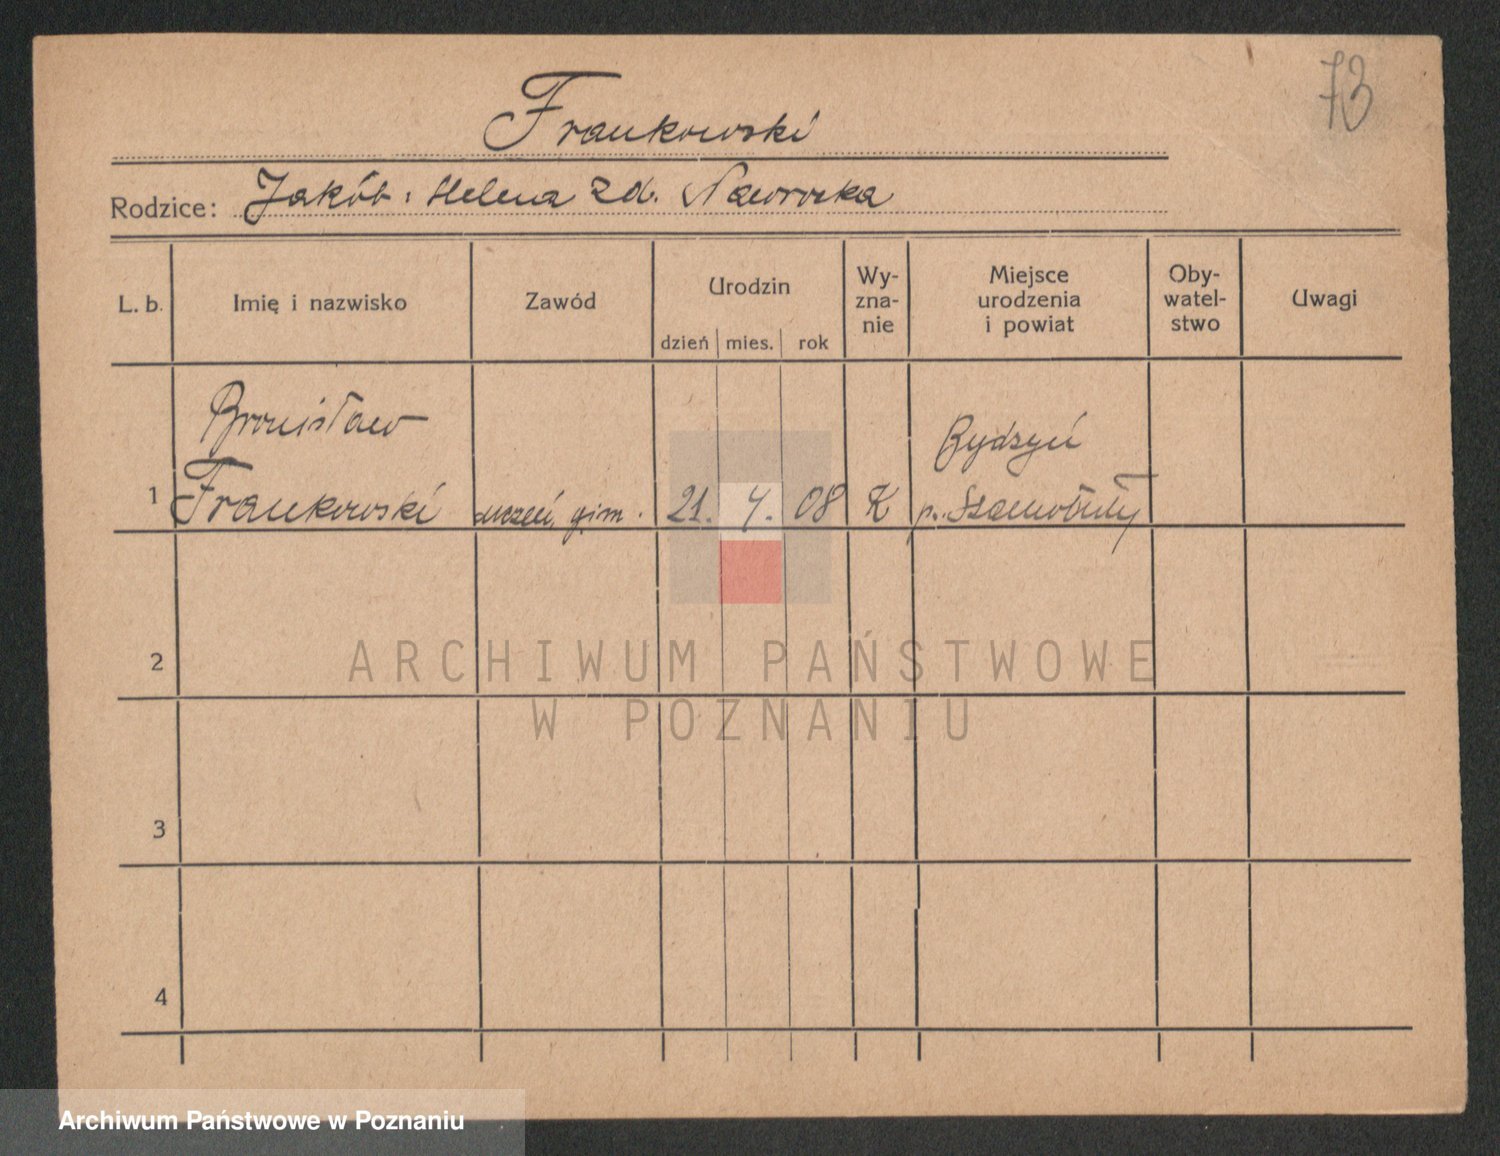 73
Frankowski
Rodzice: Jakób i Helena zd. Naworska
L. b. Imię i nazwisko Zawód Urodzin dzień mies. rok Wy-zna-nie Miejsce urodzenia i powiat Oby-watel-stwo Uwagi
Bronisław Bydzyń
1 Frankowski uczeń gim. 21. 7. 08 K p. Szamotuły
2
ARCHIWUM PAŃSTWOWE
W POZNANIU
3
4
Archiwum Państwowe w Poznaniu